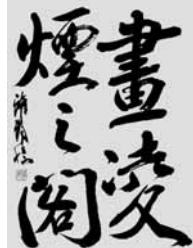 畫凌
煙之閣